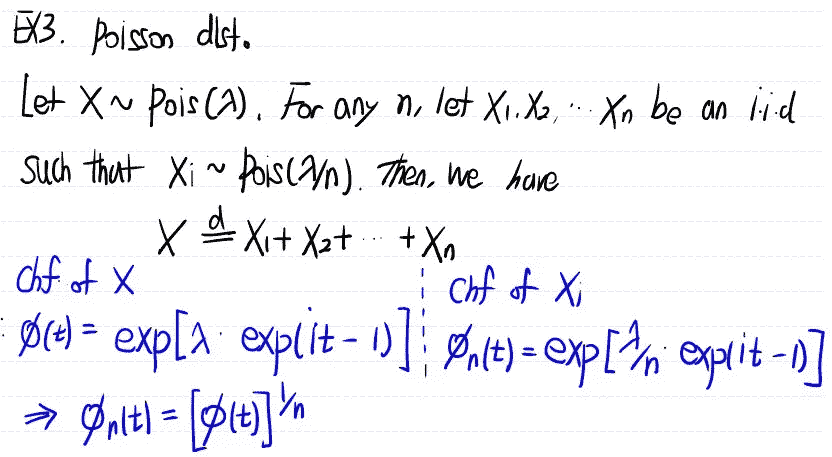 EX3. Poisson dist.
Let X ~ Pois(λ). For any n, let X₁, X₂, ⋯ Xₙ be an i.i.d
such that Xᵢ ~ Pois(λ/n). Then, we have
X =ᵈ X₁ + X₂ + ⋯ + Xₙ
chf. of X
ϕ(t) = exp[λ · exp(it - 1)]
chf of Xᵢ
ϕₙ(t) = exp[λ/n · exp(it - 1)]
⇒ ϕₙ(t) = [ϕ(t)]^1/n